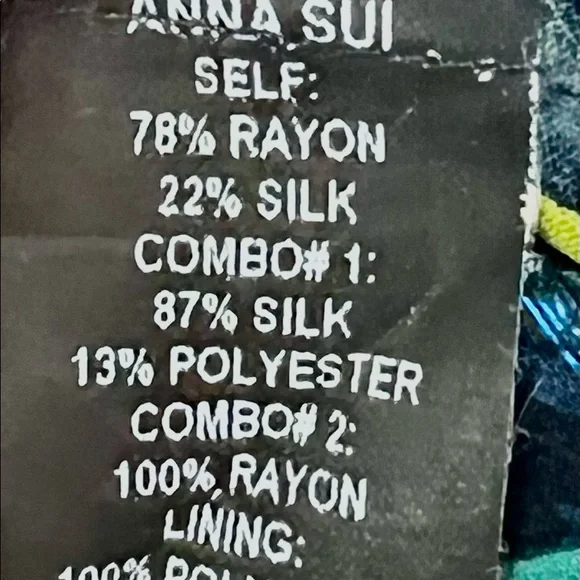 ANNA SUI
SELF:
78% RAYON
22% SILK
COMBO# 1:
87% SILK
13% POLYESTER
COMBO# 2:
100% RAYON
LINING:
100%